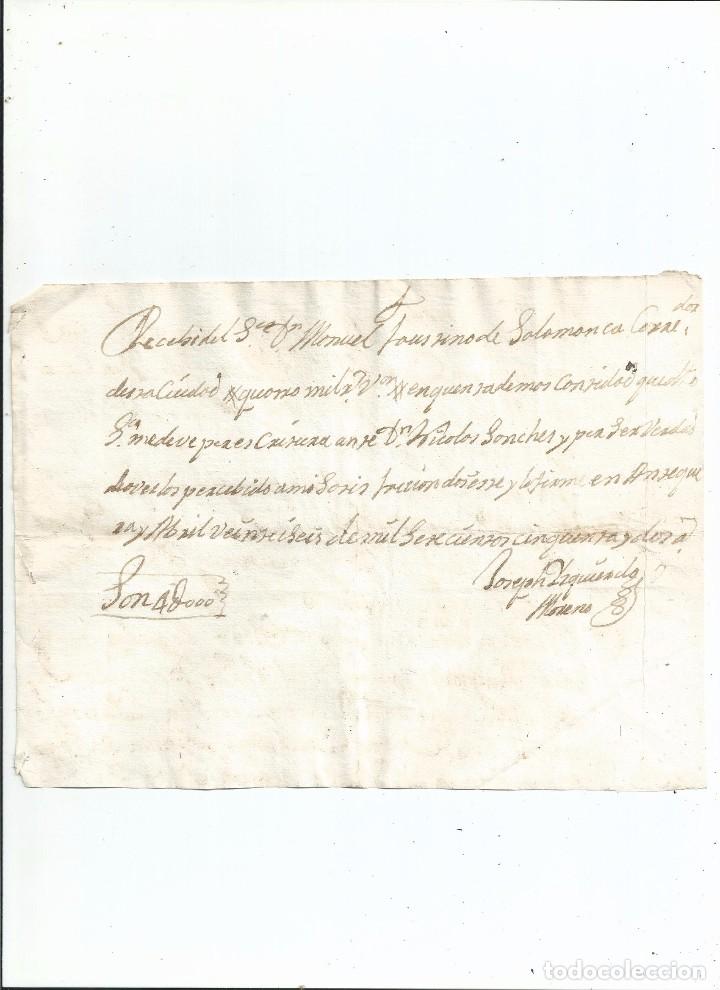 Recebi del Sor Dn Manuel faustino de Salamanca Corredor
desta Ciudad # quatro mil rs Von # en quenta de mas Cantidad que dho
Sor me deve por escritura ante Dn Nicolas Sanches y por Ser Verdad
averlos percebido a mi Satisfaccion di este y lo firme en Anteque
ra y Abril Veinte i Seis de mil Setecientos cinquenta y dos a
Joseph Izquierdo
Moreno
Son 4U000 rs
todocoleccion